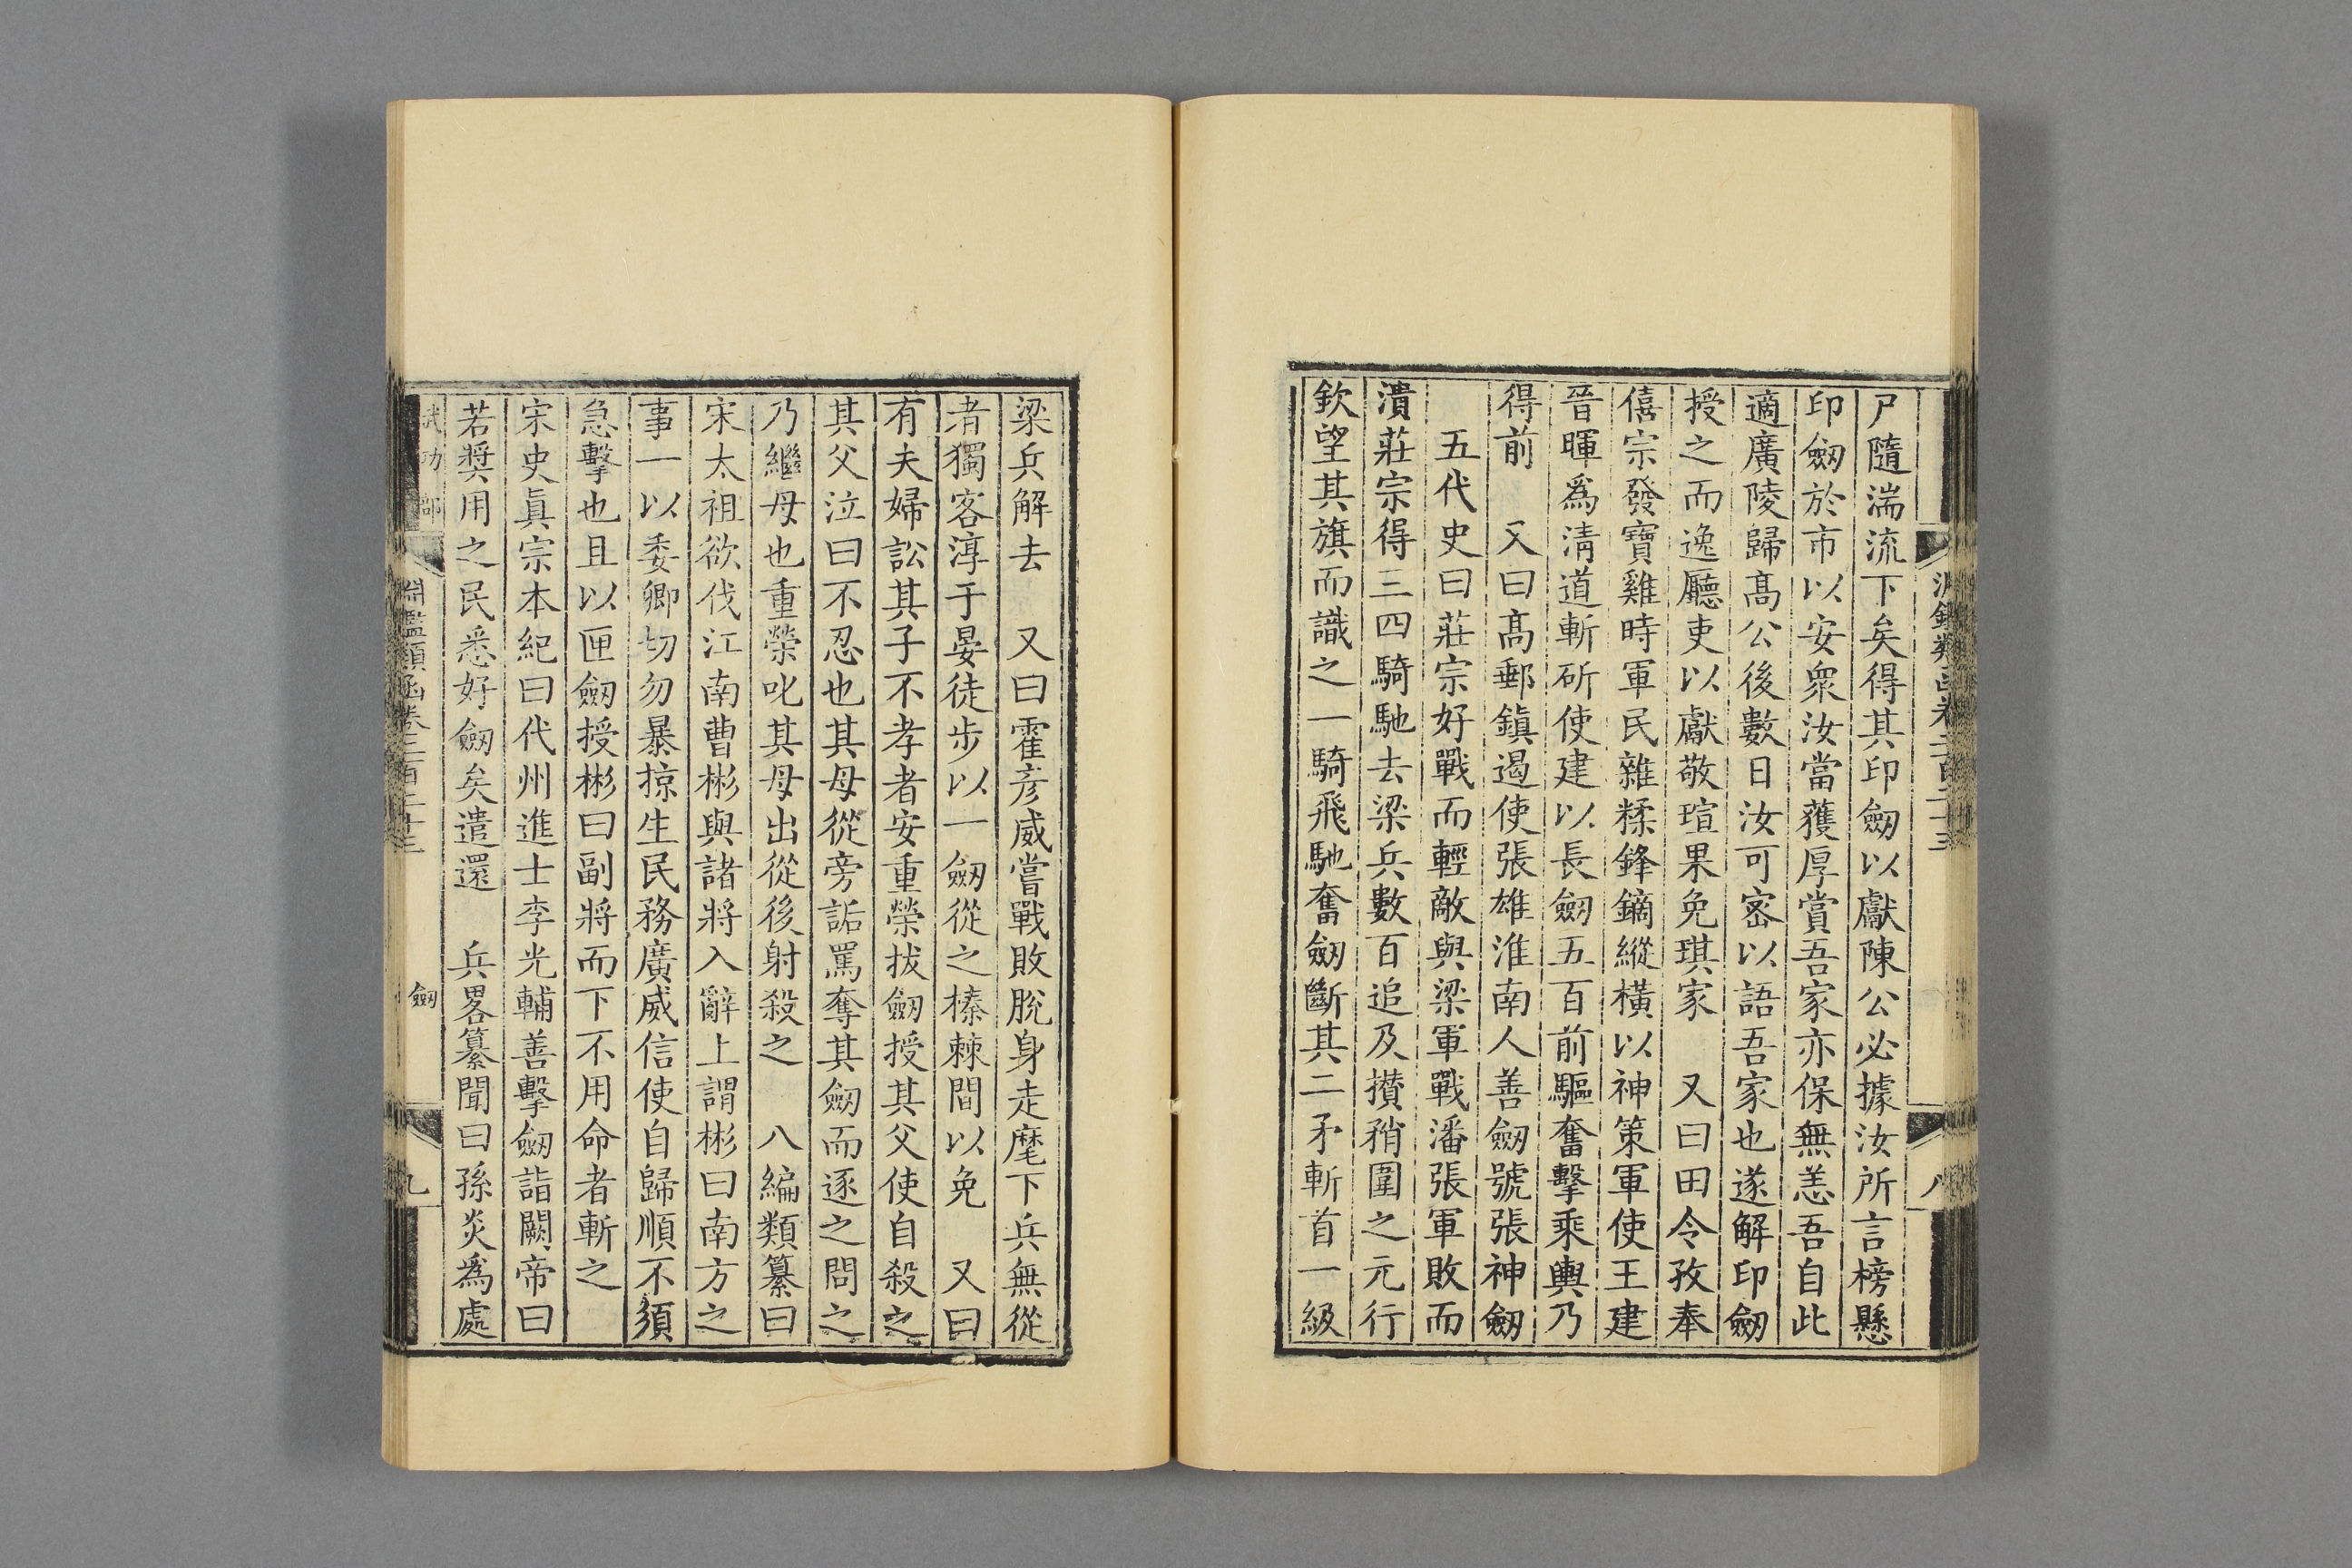 尸隨湍流下矣得其印劒以獻陳公必據汝所言榜懸
印劒於市以安衆汝當獲厚賞吾家亦保無恙吾自此
適廣陵歸髙公後數日汝可宻以語吾家也遂解印劒
授之而逸廳吏以獻敬瑄果免琪家　又曰田令孜奉
僖宗發寶雞時軍民雜糅鋒鏑縱橫以神策軍使王建
晉暉爲清道斬斫使建以長劒五百前驅奮擊乘輿乃
得前　又曰髙郵鎮遏使張雄淮南人善劒號張神劒
　五代史曰莊宗好戰而輕敵與梁軍戰潘張軍敗而
潰莊宗得三四騎馳去梁兵數百追及攅矟圍之元行
欽望其旗而識之一騎飛馳奮劒斷其二矛斬首一級
梁兵解去　又曰霍彦威嘗戰敗脫身走麾下兵無從
者獨客淳于晏徒步以一劒從之榛棘間以免　又曰
有夫婦訟其子不孝者安重榮拔劒授其父使自殺之
其父泣曰不忍也其母從旁詬罵奪其劒而逐之問之
乃繼母也重榮叱其母出從後射殺之　八編類纂曰
宋太祖欲伐江南曹彬與諸將入辭上謂彬曰南方之
事一以委卿切勿暴掠生民務廣威信使自歸順不須
急擊也且以匣劒授彬曰副將而下不用命者斬之
宋史眞宗本紀曰代州進士李光輔善擊劒詣闕帝曰
若奬用之民悉好劒矣遣還　兵畧纂聞曰孫炎爲處
武功部　淵鑑類函卷二百二十三　劒　九